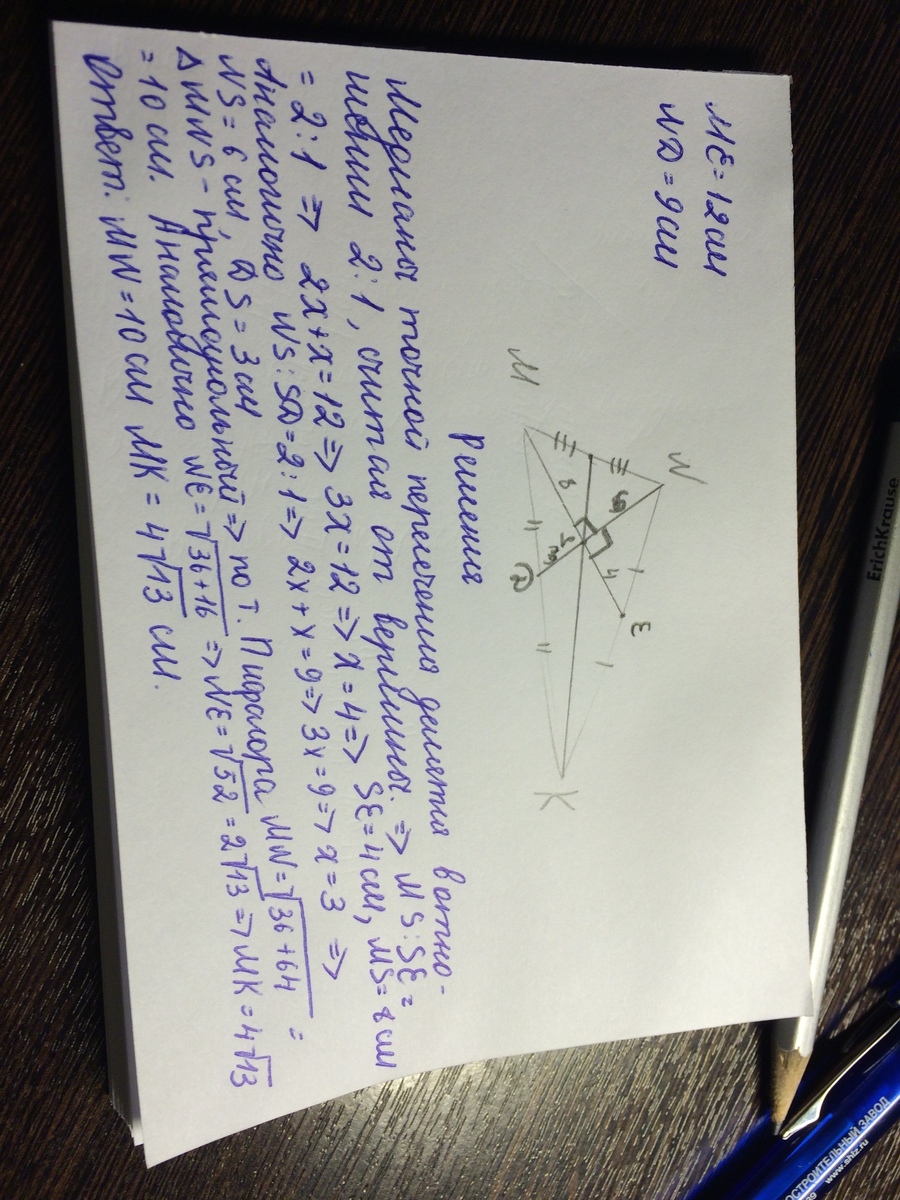 МЕ = 12 см
ND = 9 см
M
N
E
K
D
S
8
6
3
4
Решения
Медианы точкой пересечения делятся в отно-
шении 2:1, считая от вершины. => MS:SE =
= 2:1 => 2x+x=12 => 3x=12 => x=4 => SE=4 см, MS=8 см
Аналогично NS:SD=2:1 => 2x+x=9 => 3x=9 => x=3 =>
NS=6 см, DS=3 см
∆MNS - прямоугольный => по т. Пифагора MN=√36+64 =
= 10 см. Аналогично NE=√36+16 => NE=√52 = 2√13 => MK=4√13
Ответ: MN=10 см MK=4√13 см.
ErichKrause
www.shlz.ru